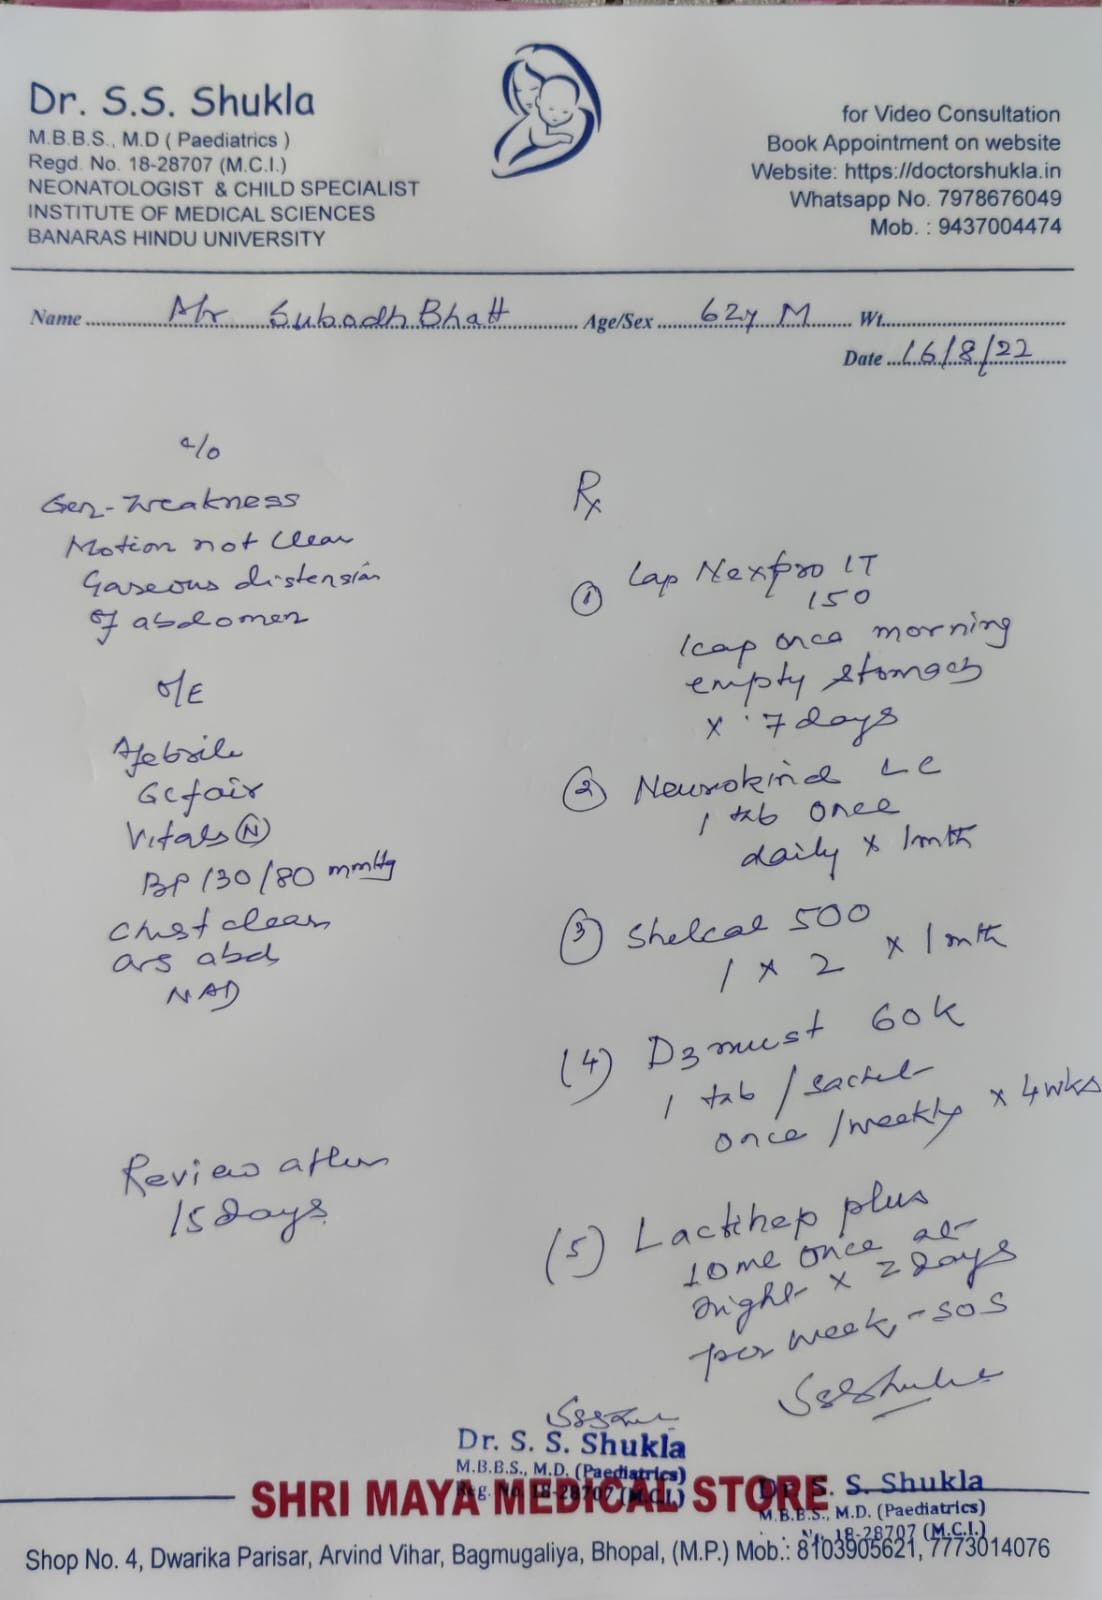 Dr. S.S. Shukla
M.B.B.S., M.D ( Paediatrics )
Regd. No. 18-28707 (M.C.I.)
NEONATOLOGIST & CHILD SPECIALIST
INSTITUTE OF MEDICAL SCIENCES
BANARAS HINDU UNIVERSITY
for Video Consultation
Book Appointment on website
Website: https://doctorshukla.in
Whatsapp No. 7978676049
Mob. : 9437004474
Name Mr Subodh Bhatt Age/Sex 62y M Wt.
Date 16/8/22
c/o
Gen-Weakness
Motion not clear
Gaseous distension
of abdomen
O/E
Afebrile
GC fair
Vitals (N)
BP 130/80 mmHg
Chest clear
abd
NAD
Review after
15 days
Rx
(1) Cap Nexpro IT
150
1 cap once morning
empty stomach
x 7 days
(2) Neurokind LC
1 tab once
daily x 1 mth
(3) Shelcal 500
1 x 2 x 1 mth
(4) D3 must 60K
1 tab / sachet
once / weekly x 4 wks
(5) Lactihep plus
10 ml once at
night x 2 days
per week, - SOS
SSShukla
Dr. S. S. Shukla
M.B.B.S., M.D. (Paediatrics)
Reg. No. 18-28707 (M.C.I.)
Dr. S. S. Shukla
M.B.B.S., M.D. (Paediatrics)
18-28707 (M.C.I.)
SHRI MAYA MEDICAL STORE
Shop No. 4, Dwarika Parisar, Arvind Vihar, Bagmugaliya, Bhopal, (M.P.) Mob.: 8103905621, 7773014076